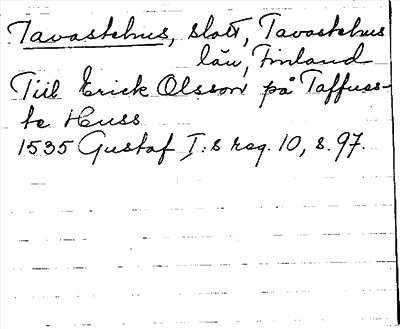 Tavastehus, slott, Tavastehus
län, Finland
Till Erick Olsson på Taffuss-
te Huss
1535 Gustaf I:s reg. 10, s. 97.